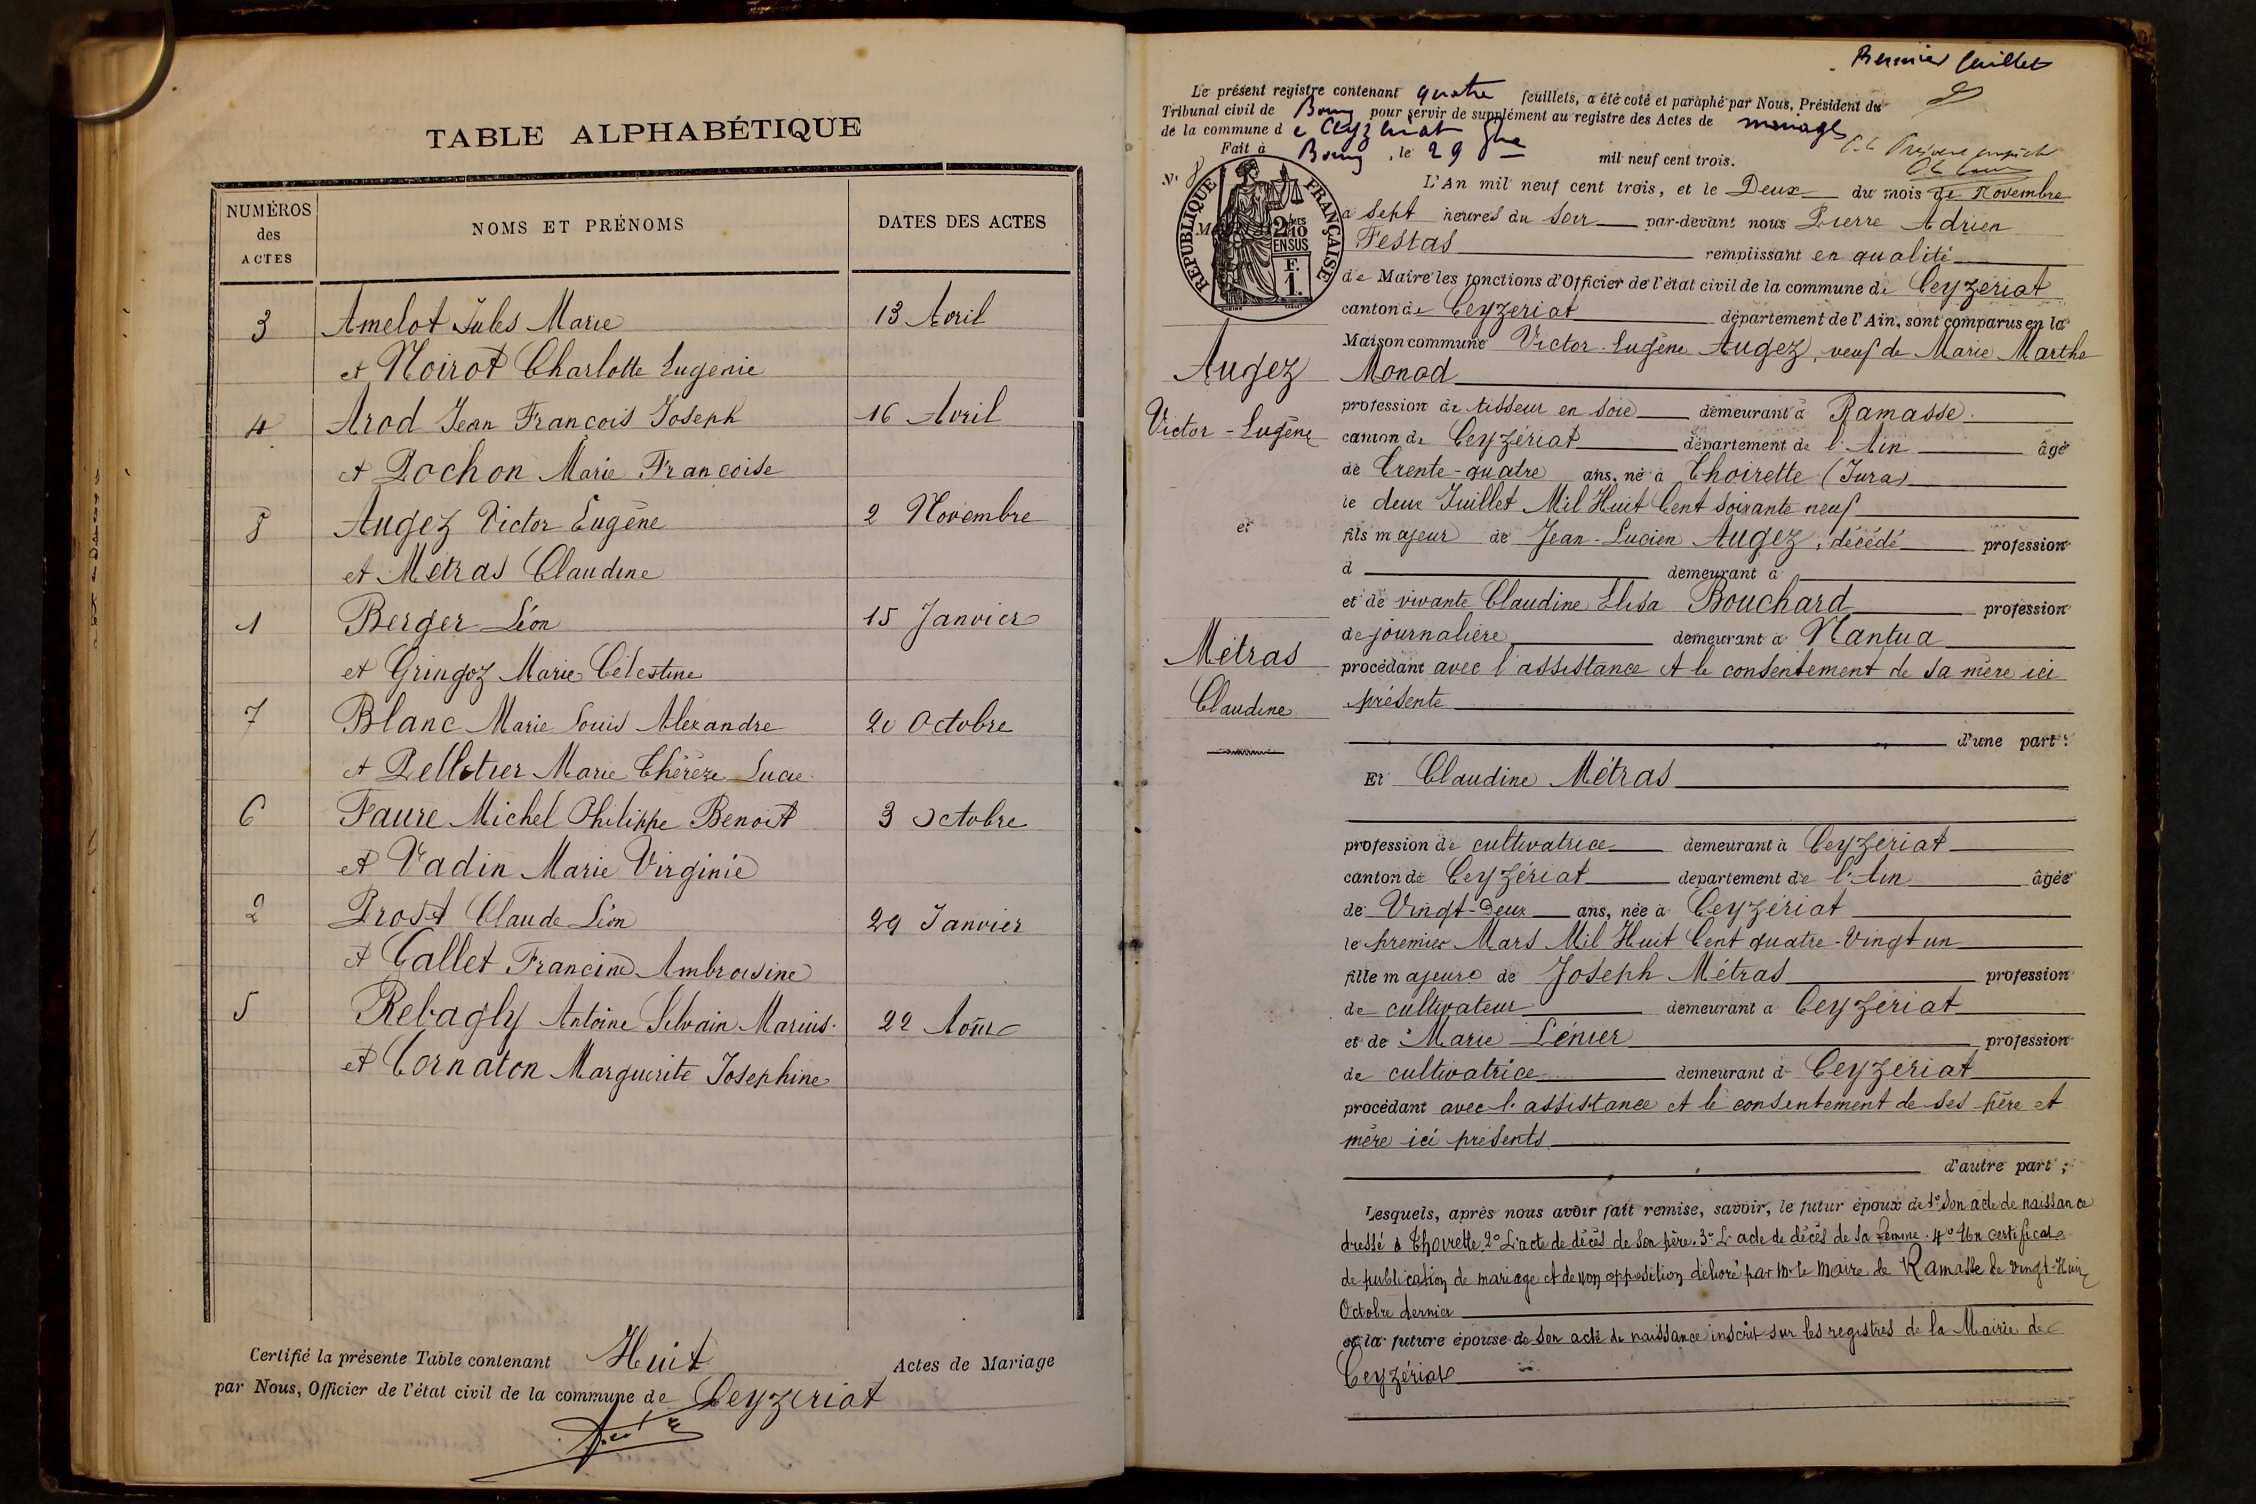 TABLE ALPHABÉTIQUE
NUMÉROS des ACTES
NOMS ET PRÉNOMS
DATES DES ACTES
3 Amelot Jules Marie 13 Avril
et Noirot Charlotte Eugénie
4 Arod Jean François Joseph 16 Avril
et Pochon Marie Françoise
8 Augez Victor Eugène 2 Novembre
et Métras Claudine
1 Berger Léon 15 Janvier
et Gringoz Marie Célestine
7 Blanc Marie Louis Alexandre 20 Octobre
et Pelletier Marie Thérèze Lucie
6 Faure Michel Philippe Benoit 3 Octobre
et Vadin Marie Virginie
2 Prost Claude Léon 29 Janvier
et Gallet Francine Ambroisine
5 Rebagly Antoine Silvain Marius 22 Août
et Cornaton Marguerite Joséphine
Certifié la présente Table contenant Huit Actes de Mariage
par Nous, Officier de l'état civil de la commune de Ceyzériat
Premier feuillet
Le présent registre contenant quatre feuillets, a été coté et paraphé par Nous, Président du
Tribunal civil de Bourg pour servir de supplément au registre des Actes de mariages
de la commune de Ceyzériat
Fait à Bourg, le 29 mil neuf cent trois.
P. le Président empêché
N° 8
RÉPUBLIQUE FRANÇAISE
2/10
EN SUS
F.
1.
L'An mil neuf cent trois, et le Deux du mois de Novembre
à sept heures du soir par-devant nous Pierre Adrien
Festas remplissant en qualité
de Maire les fonctions d'Officier de l'état civil de la commune de Ceyzériat
canton de Ceyzériat département de l'Ain, sont comparus en la
Maison commune Victor Eugène Augez, veuf de Marie Marthe
Monod
profession de tisseur en soie demeurant à Ramasse
canton de Ceyzériat département de l'Ain âgé
de trente-quatre ans, né à Thoirette (Jura)
le deux Juillet Mil Huit Cent soixante neuf
fils majeur de Jean-Lucien Augez, décédé profession
d demeurant à
et de vivante Claudine Elisa Bouchard profession
de journalière demeurant à Nantua
procédant avec l'assistance et le consentement de sa mère ici
présente
d'une part:
Augez
Victor-Eugène
et
Métras
Claudine
Et Claudine Métras
profession de cultivatrice demeurant à Ceyzériat
canton de Ceyzériat département de l'Ain âgée
de Vingt-Deux ans, née à Ceyzériat
le premier Mars Mil Huit Cent quatre-Vingt un
fille majeure de Joseph Métras profession
de cultivateur demeurant à Ceyzériat
et de Marie Lénier profession
de cultivatrice demeurant à Ceyzériat
procédant avec l'assistance et le consentement de ses père et
mère ici présents
d'autre part;
Lesquels, après nous avoir fait remise, savoir, le futur époux de 1° Son acte de naissance
dressé à Thoirette 2° L'acte de décès de son père. 3° L'acte de décès de sa femme. 4° Un certificat
de publication de mariage et de non opposition délivré par Mr le Maire de Ramasse le vingt-Huit
Octobre dernier
et la future épouse de son acte de naissance inscrit sur les registres de la Mairie de
Ceyzériat